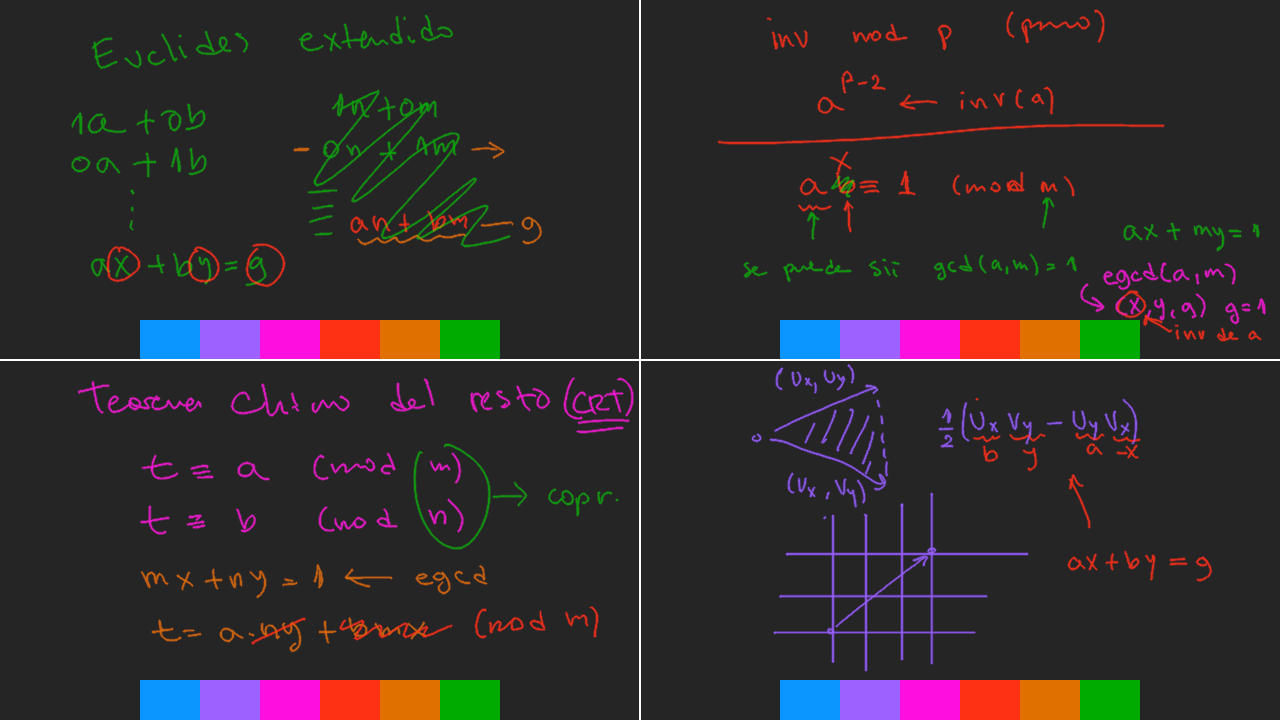 Euclides extendido
1a + 0b
0a + 1b
⋮
ax + by = g
1n + 0m
0n + 1m
an + bm — g
inv mod p (primo)
a^{p-2} ← inv(a)
x
a ≡ 1 (mod m)
se puede sii gcd(a,m) = 1
ax + my = 1
egcd(a,m)
(x,y,g) g=1
inv de a
Teorema Chino del resto (CRT)
t ≡ a (mod m)
t ≡ b (mod n)
→ copr.
mx + ny = 1 ← egcd
t = a·ny + bmx (mod m)
(Ux, Uy)
0
(Vx, Vy)
1/2 (Ux Vy − Uy Vx)
b y a -x
ax + by = g